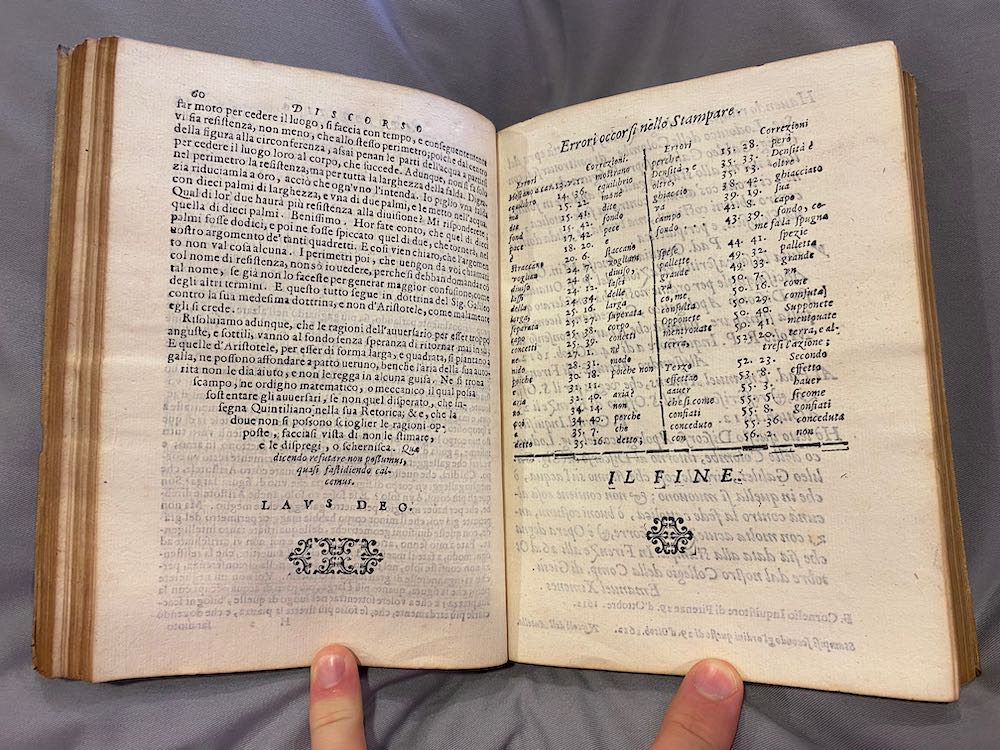 60 DISCORSO
far moto per cedere il luogo, si faccia con tempo, e conseguentemente
vi sia resistenza, non meno, che allo stesso perimetro; poiche dal centro
della figura alla circonferenza, assai penan le parti dell'acqua a partirsi
per cedere il luogo loro al corpo, che succede. Adunque, non è solo
nel perimetro la resistenza, ma per tutta la larghezza della falda. Digra-
zia riduciamla a oro, acciò che ogn'vno l'intenda. Io piglio vna falda
con dieci palmi di larghezza, e vna di due palmi, e le metto nell'acqua.
Qual di lor due haurà più resistenza alla diuisione? Mi risponderete,
quella di dieci palmi. Benissimo. Hor fate conto, che quel di dieci
palmi fosse dodici, e poi ne fosse spiccato quel di due, che tornerà, nel
vostro argomento de' tanti quadretti. E così vien chiaro, che l'argomen
to non val cosa alcuna. I perimetri poi, che uengon da voi chiamati
col nome di resistenza, non sò io uedere, perche si debban domandar cō
tal nome, se già non lo faceste per generar maggior confusione, come
degli altri termini. E questo tutto segue in dottrina del Sig. Galileo
contro la sua medesima dottrina, e non d'Aristotele, come malamente
egli si crede.
Risoluiamo adunque, che le ragioni dell'auuersario per esser troppo
anguste, e sottili, vanno al fondo senza speranza di ritornar mai in sù;
E quelle d'Aristotele, per esser di forma larga, e quadrata, si piantino a
galla, ne possono affondare a patto ueruno, benche l'aria della sua auto
rità non le dia aiuto, e non le regga in alcuna guisa. Ne si troua
scampo, ne ordigno matematico, o meccanico il qual possa
sostentare gli auuersari, se non quel disperato, che in-
segna Quintiliano nella sua Retorica; & e, che la
doue non si possono scioglier le ragioni op-
poste, facciasi vista di non le stimare,
e le dispregi, o schernisca. Quæ
dicendo refutare non possumus,
quasi fastidiendo cal-
cemus.
LAVS DEO.
H 2
Errori occorsi nello Stampare.
Errori Correzioni. Errori Correzioni
mostrano perche 35. 28. però
equilibro 14. 36. equilibrio Densità, 35. 33. Densità è
ma 15. 22. mano oltre, 35. 13. oltre
15. 41. dite ghiaccio 38. 42. ghiacciato
fond 17. 42. fondo 39. 19. sua
pace 18. 20. pece campo 42. 8. capo
è 20. 6. e fondo 43. 39. fondo, co-
straccano 24. 7. staccano me fa la spugna
vogliam 24. 8. vogliam; spese 44. 41. spezie
diuiso 24. 12. diuiso, palletta 49. 32. palletta
24. 34. lasci grande 49. 33. grande
della 25. 16. delle 50. 7. vn
larga, 25. 28. larga co, me 50. 16. come
seperata 25. 38. superata consulta 50. 29. confuta)
capo 25. 39. corpo Opponete 50. 40. Supponete
concetti 27. 1. concetti mentrouate 50. 41. mentouate
ne 28. 31. nè terra, 52. 20. terra, e al-
30. 18. modo tresì l'azione;
poiche 31. 6. poiche non Terzo 52. 23. Secondo
32. 40. aria? effettao 53. 8. effetto
34. 14. non hauer 55. 3. hauer
34. 40. perche che si come 55. 5. si come
35. 7. che consiati 55. 8. gonfiati
detto 35. 16. detto; conceduto 55. 36. conceduta
con 56. 3. non
IL FINE.